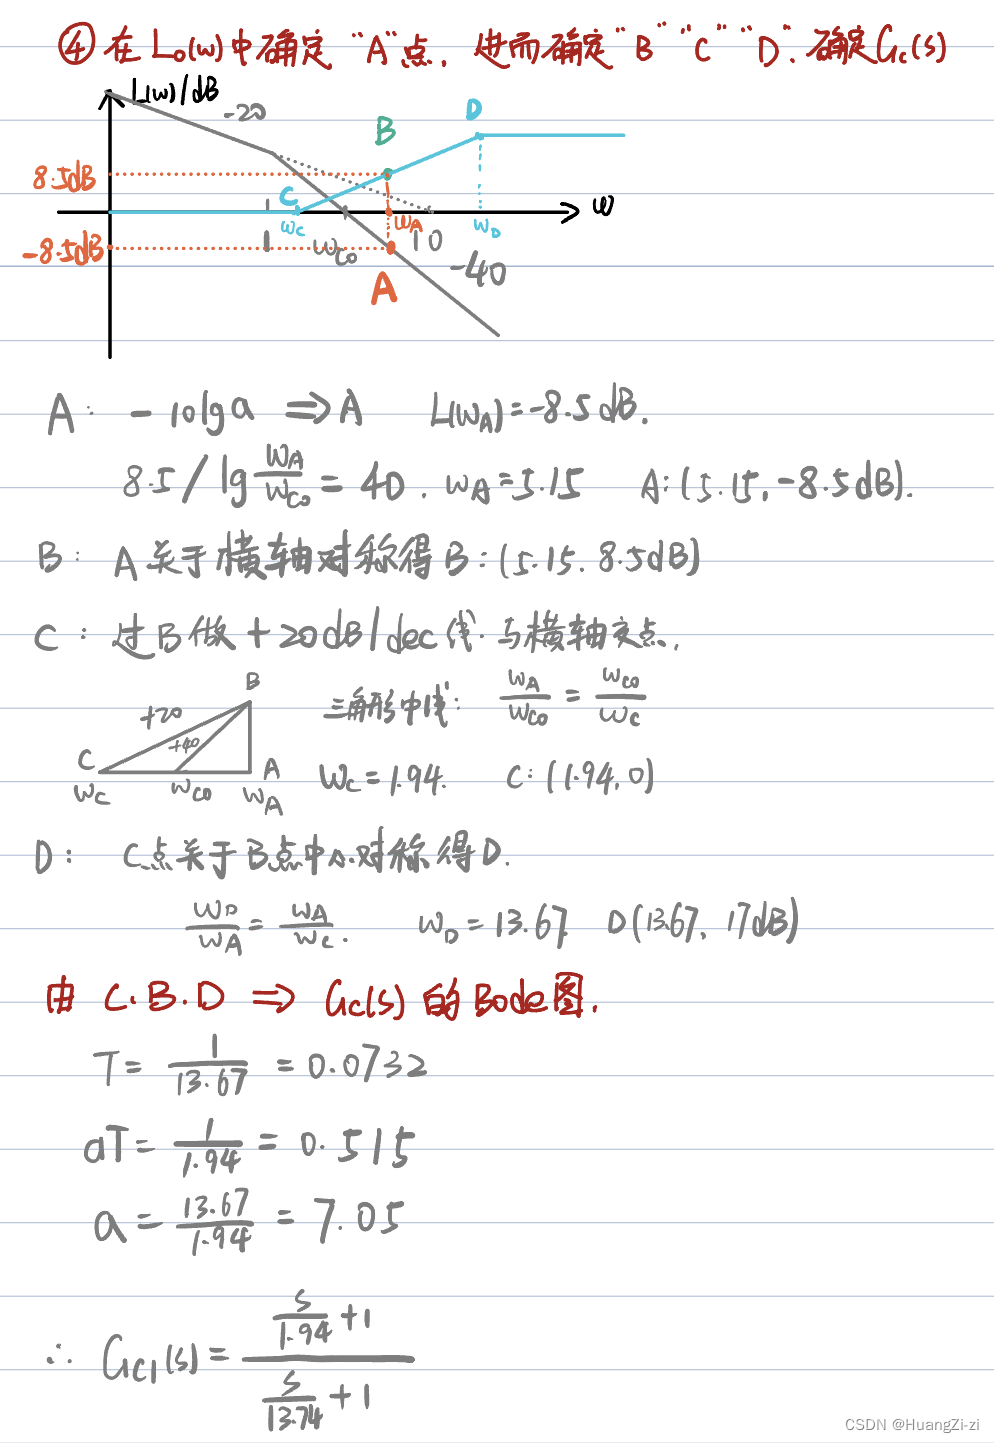 ④ 在 L₀(ω)中确定 "A"点, 进而确定"B" "C" "D". 确定Gc(s)
L(ω)/dB
-20
D
B
8.5dB
C
ω
ωc
ωA
ωD
1
ωc₀
10
-8.5dB
A
-40
A: -10lga ⇒ A L(ωA)=-8.5dB.
8.5/lg ωA/ωc₀ = 40. ωA=5.15 A:(5.15,-8.5dB).
B: A关于横轴对称得B:(5.15. 8.5dB)
C: 过B做+20dB/dec线与横轴交点.
B
+20
+40
C
A
ωc
ωc₀
ωA
三角形中线: ωA/ωc₀ = ωc₀/ωc
ωc=1.94. C:(1.94,0)
D: C点关于B点中心对称得D.
ωD/ωA = ωA/ωc. ωD=13.67 D(13.67, 17dB)
由 C.B.D ⇒ Gc(s)的Bode图.
T= 1/13.67 = 0.0732
aT= 1/1.94 = 0.515
a= 13.67/1.94 = 7.05
∴ Gc1(s)= (s/1.94 +1)/(s/13.74 +1)
CSDN @HuangZi-zi